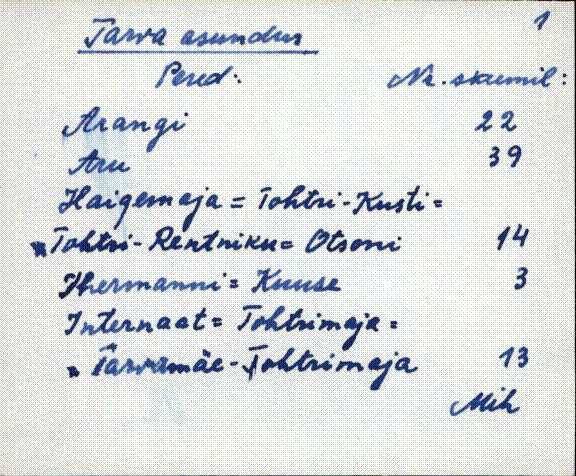 1
Tarva asundus
Pered: Nr. skeemil:
Arangi 22
Aru 39
Haigemaja = Tohtri-Kusti =
Tohtri-Rentniku = Otsoni 14
Hermanni = Kuuse 3
Internaat = Tohtrimaja =
= Tarvamäe-Tohtrimaja 13
Mih